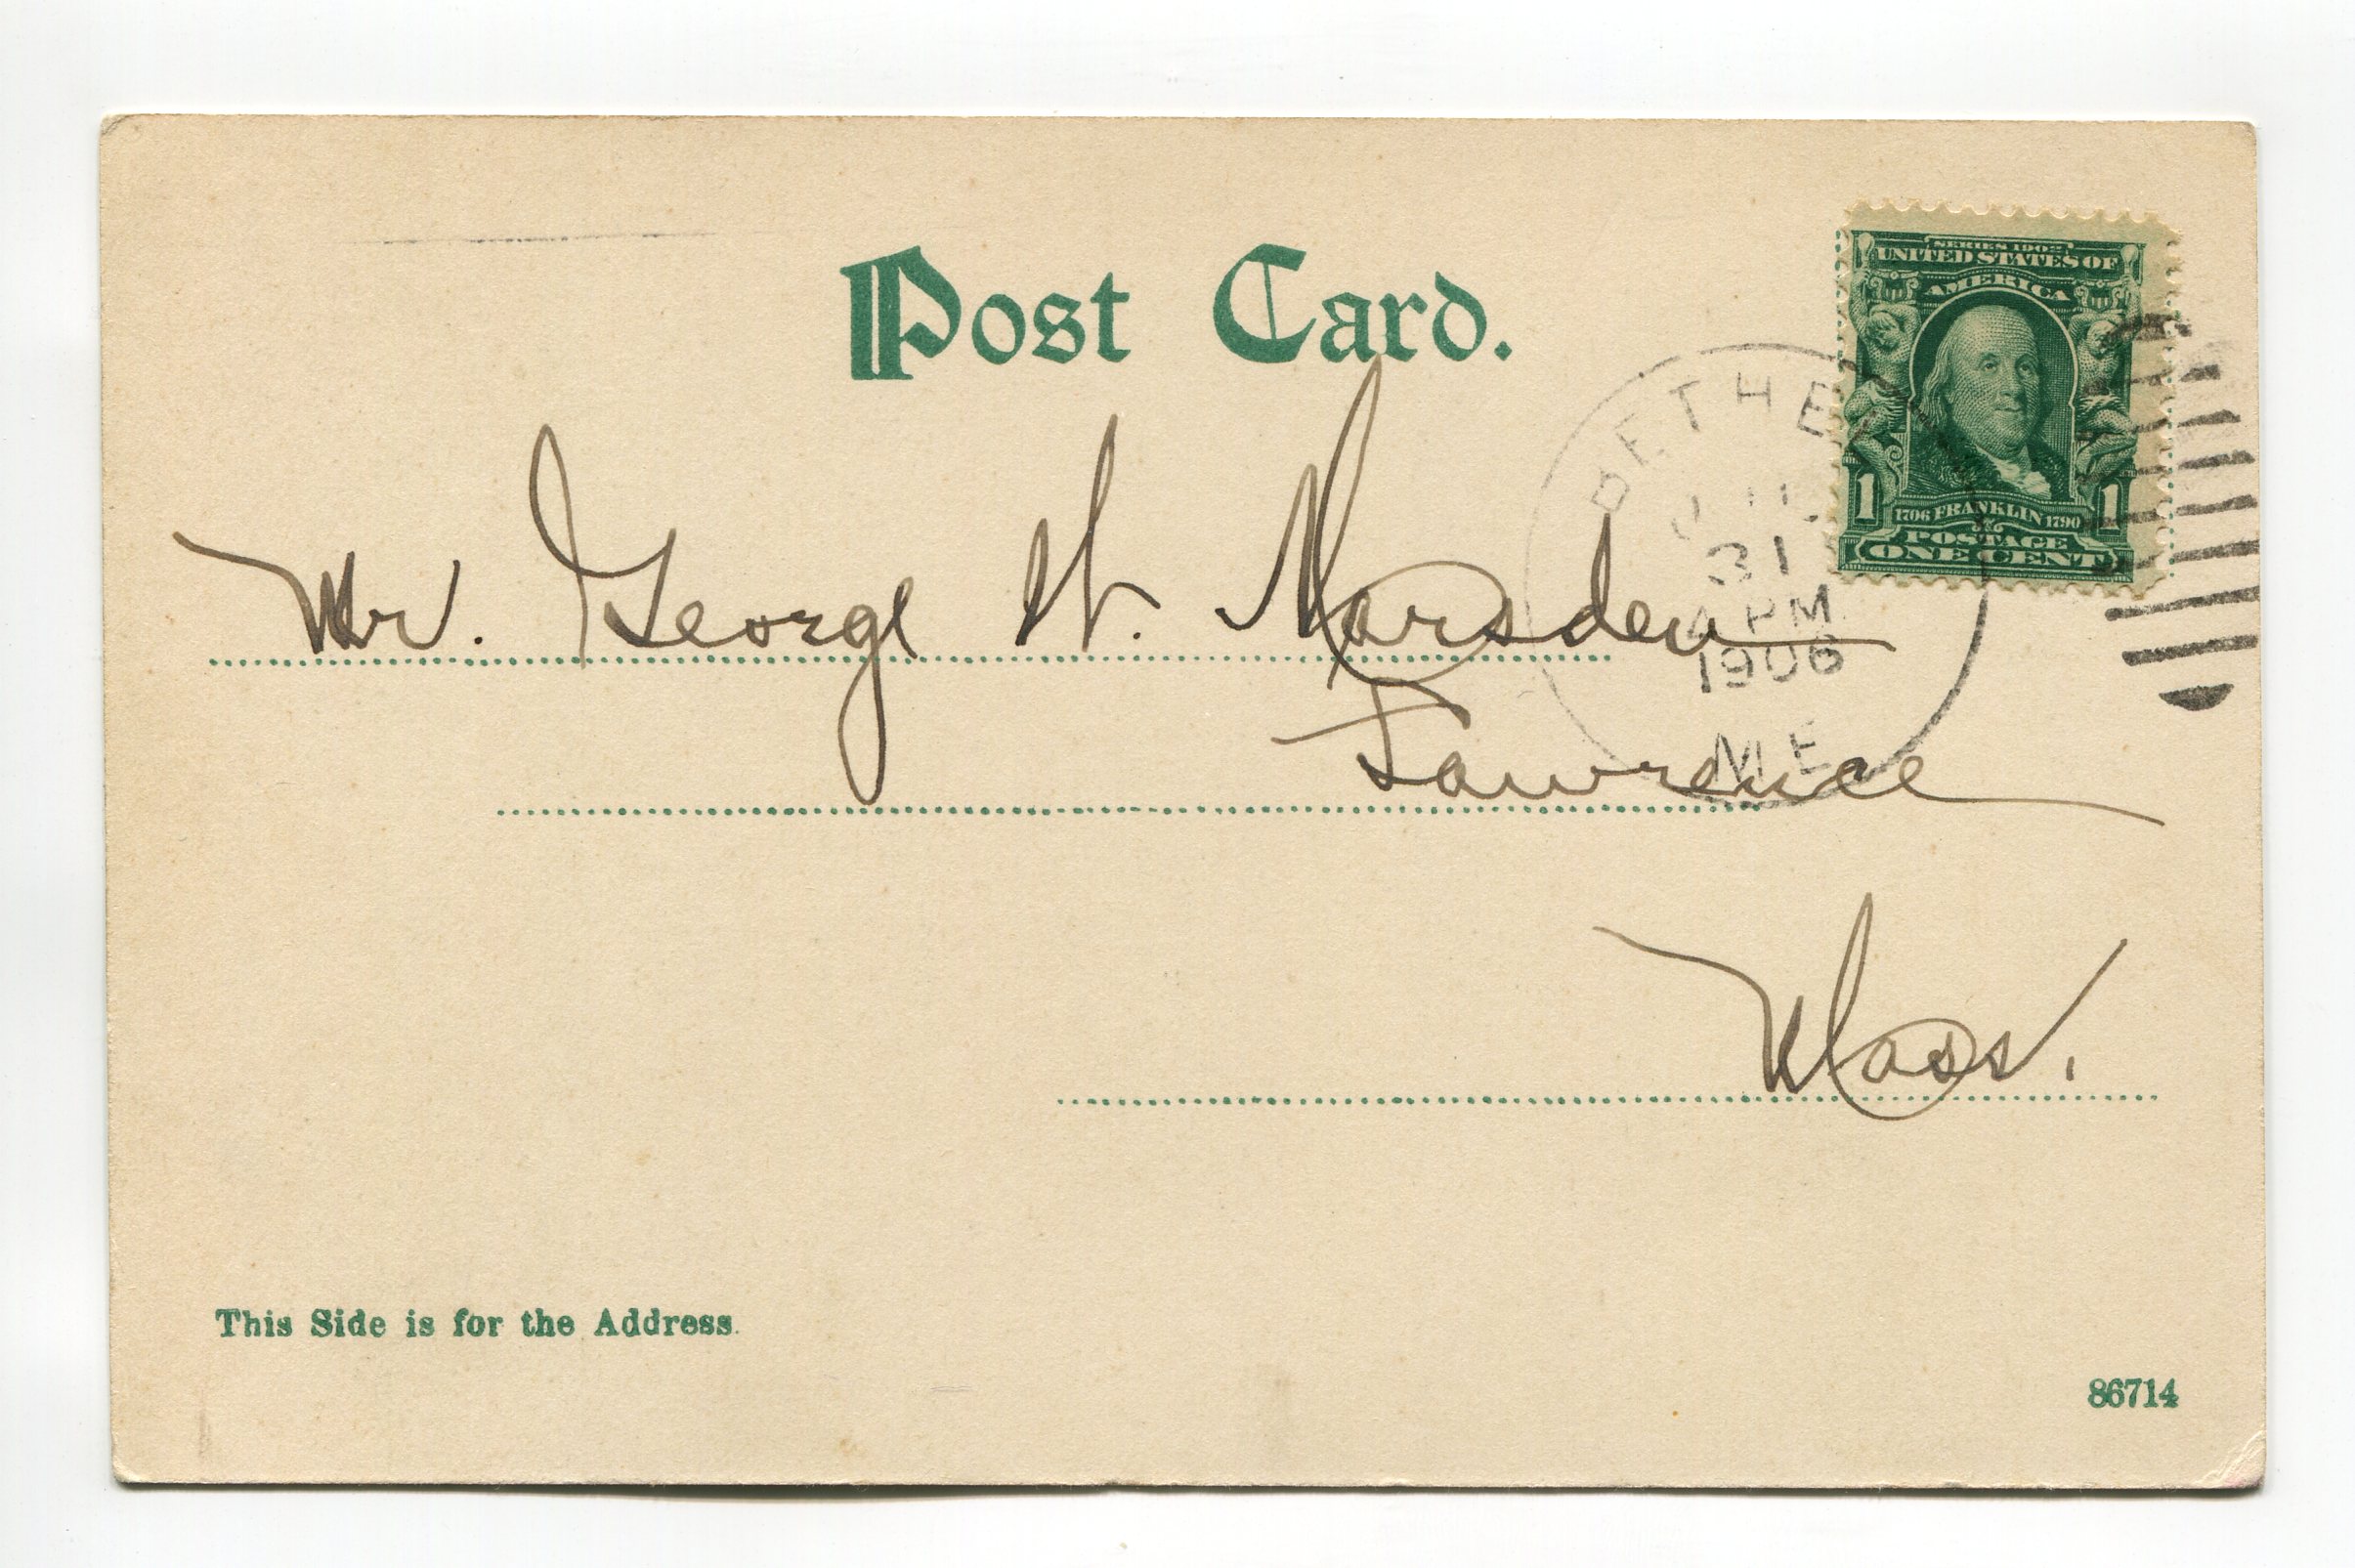 Post Card.
SERIES 1902
UNITED STATES OF
AMERICA
1 1
1706 FRANKLIN 1790
POSTAGE
ONE CENT
BETHEL
31
4 PM
1906
ME.
Mr. George W. Marsden
Lawrence
Mass.
This Side is for the Address.
86714